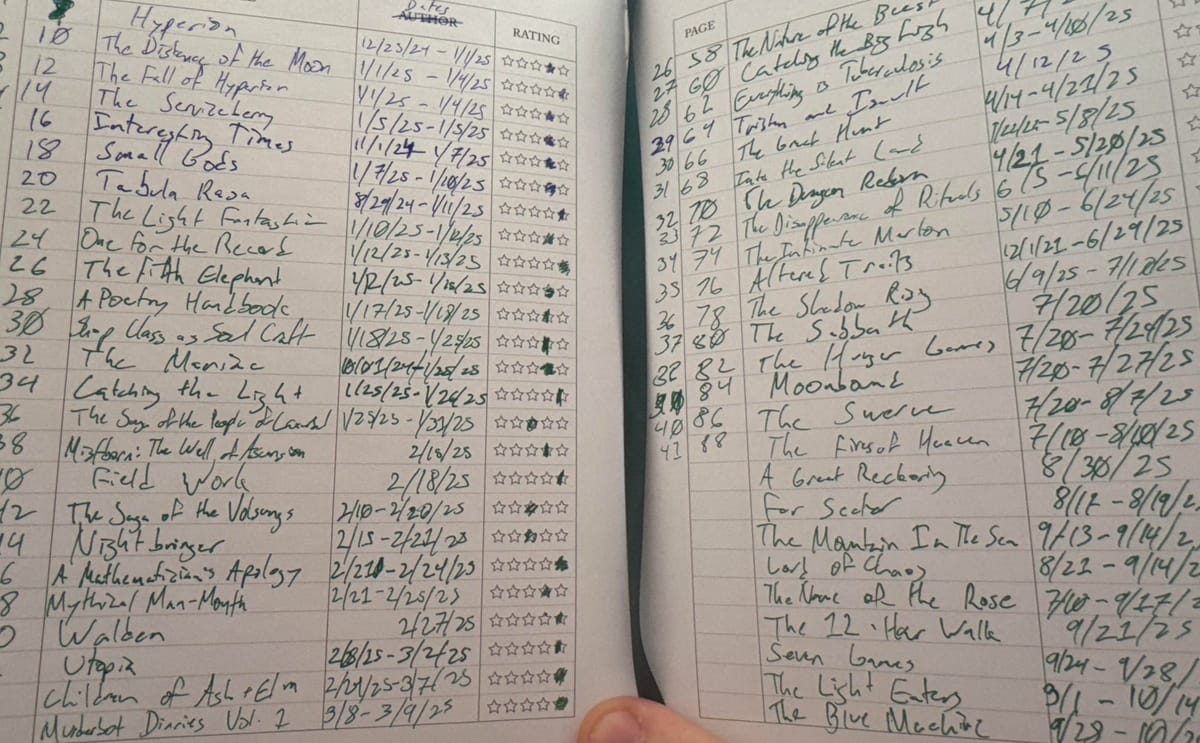 Dates
AUTHOR RATING
Hyperion 12/23/24 - 1/1/25
10 The Distance of the Moon 1/1/25 - 1/4/25
12 The Fall of Hyperion 1/1/25 - 1/4/25
14 The Serviceberry 1/5/25 - 1/5/25
16 Interesting Times 11/1/24 - 1/7/25
18 Small Gods 1/7/25 - 1/10/25
20 Tabula Rasa 8/29/24 - 1/11/25
22 The Light Fantastic 1/10/25 - 1/12/25
24 One for the Record 1/12/25 - 1/13/25
26 The Fifth Elephant 1/12/25 - 1/16/25
28 A Poetry Handbook 1/17/25 - 1/18/25
30 Shop Class as Soul Craft 1/18/25 - 1/25/25
32 The Maniac 10/01/24 - 1/25/25
34 Catching the Light 1/25/25 - 1/26/25
36 The Saga of the People of Laxardal 1/25/25 - 1/31/25
38 Mistborn: The Well of Ascension 2/18/25
Field Work 2/18/25
The Saga of the Volsungs 2/10 - 2/20/25
Nightbringer 2/15 - 2/21/25
A Mathematician's Apology 2/21 - 2/24/25
Mythical Man-Month 2/21 - 2/25/25
Walden 2/27/25
Utopia 2/8/25 - 3/2/25
Children of Ash + Elm 2/21/25 - 3/7/25
Murderbot Diaries Vol. 1 3/8 - 3/9/25
PAGE
The Nature of the Beast
26 58 Catching the Big Fish 4/7
27 60 Everything is Tuberculosis 4/3 - 4/10/25
28 62 Tristan and Isault 4/12/25
29 64 The Great Hunt 4/14 - 4/21/25
30 66 Into the Silent Land 1/22/25 - 5/8/25
31 68 The Dragon Reborn 4/21 - 5/20/25
32 70 The Disappearance of Rituals 6/5 - 6/11/25
33 72 The Intimate Merton 5/10 - 6/24/25
34 74 Altered Traits 12/1/21 - 6/29/25
35 76 The Shadow Rising 6/9/25 - 7/10/25
36 78 The Sabbath 7/20/25
37 80 The Hunger Games 7/20 - 7/24/25
38 82 Moonbound 7/20 - 7/27/25
84 The Swerve 7/20 - 8/7/25
40 86 The Fires of Heaven 7/10 - 8/10/25
41 88 A Great Reckoning 8/30/25
Far Sector 8/17 - 8/19/2
The Mountain In The Sea 9/13 - 9/14/2
Lord of Chaos 8/21 - 9/14/2
The Name of the Rose 7/10 - 9/17/
The 12-Hour Walk 9/21/25
Seven Games 9/24 - 9/28/
The Light Eaters 9/1 - 10/14
The Blue Machine 9/28 - 10/